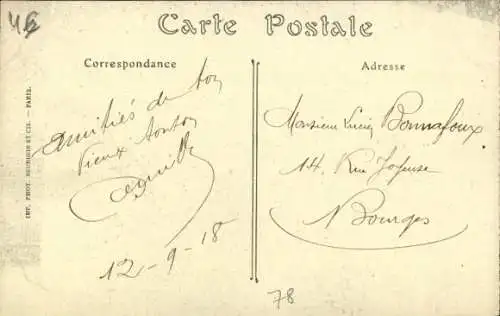 Carte Postale
Correspondance
Adresse
Amitiés de ton
Vieux tonton
12-9-18
Monsieur Lucien Bonnafoux
14, Rue Joyeuse
Bourges
78
IMP. PHOT. NEURDEIN ET CIE. — PARIS.